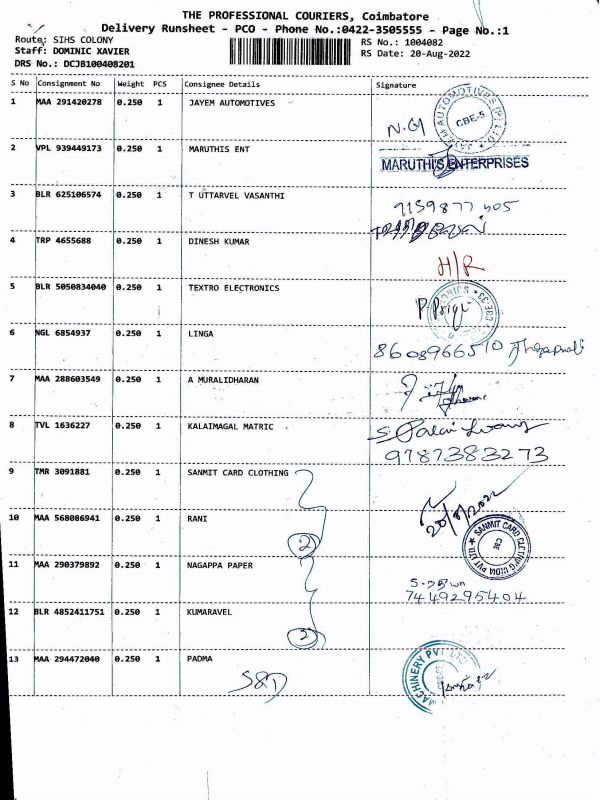 THE PROFESSIONAL COURIERS, Coimbatore
Delivery Runsheet - PCO - Phone No.:0422-3505555 - Page No.:1
Route: SIHS COLONY
RS No.: 1004082
Staff: DOMINIC XAVIER
RS Date: 20-Aug-2022
DRS No.: DCJB100408201
S No Consignment No Weight PCS Consignee Details Signature
1 MAA 291420278 0.250 1 JAYEM AUTOMOTIVES
JAYEM AUTOMOTIVES (P) LTD
CBE-5
2 VPL 939449173 0.250 1 MARUTHIS ENT
MARUTHI'S ENTERPRISES
3 BLR 625106574 0.250 1 T UTTARVEL VASANTHI
4 TRP 4655688 0.250 1 DINESH KUMAR
H/R
5 BLR 5050834040 0.250 1 TEXTRO ELECTRONICS
CBE-33
6 NGL 6854937 0.250 1 LINGA
8608966510
7 MAA 288603549 0.250 1 A MURALIDHARAN
8 TVL 1636227 0.250 1 KALAIMAGAL MATRIC
9787383273
9 TMR 3091881 0.250 1 SANMIT CARD CLOTHING
20/8/2022
10 MAA 568086941 0.250 1 RANI
2
SANMIT CARD CLOTHING INDIA PVT LTD
CBE
11 MAA 290379892 0.250 1 NAGAPPA PAPER
7449295404
12 BLR 4852411751 0.250 1 KUMARAVEL
2
13 MAA 294472040 0.250 1 PADMA
MACHINERY PVT LTD